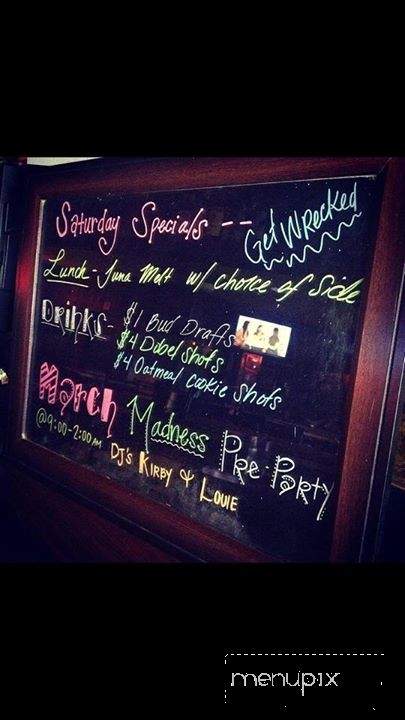 Saturday Specials --
Get Wrecked
Lunch - Tuna Melt w/ choice of Side
Drinks - $1 Bud Drafts
$4 Dubel Shots
$4 Oatmeal Cookie Shots
March Madness Pre-Party
@9:00-2:00am
DJ's Kirby & Louie
menupix